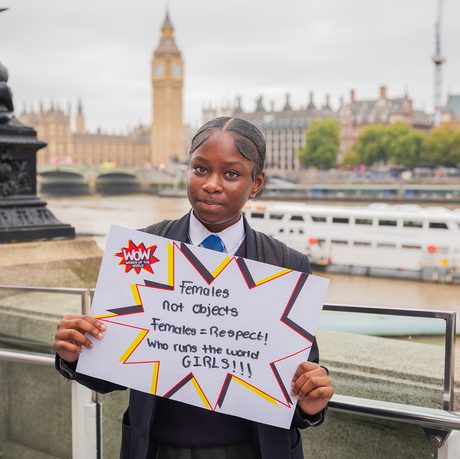 WOW
WOMEN OF THE
Females
Not Objects
Females = Respect!
Who runs the world
GIRLS!!!